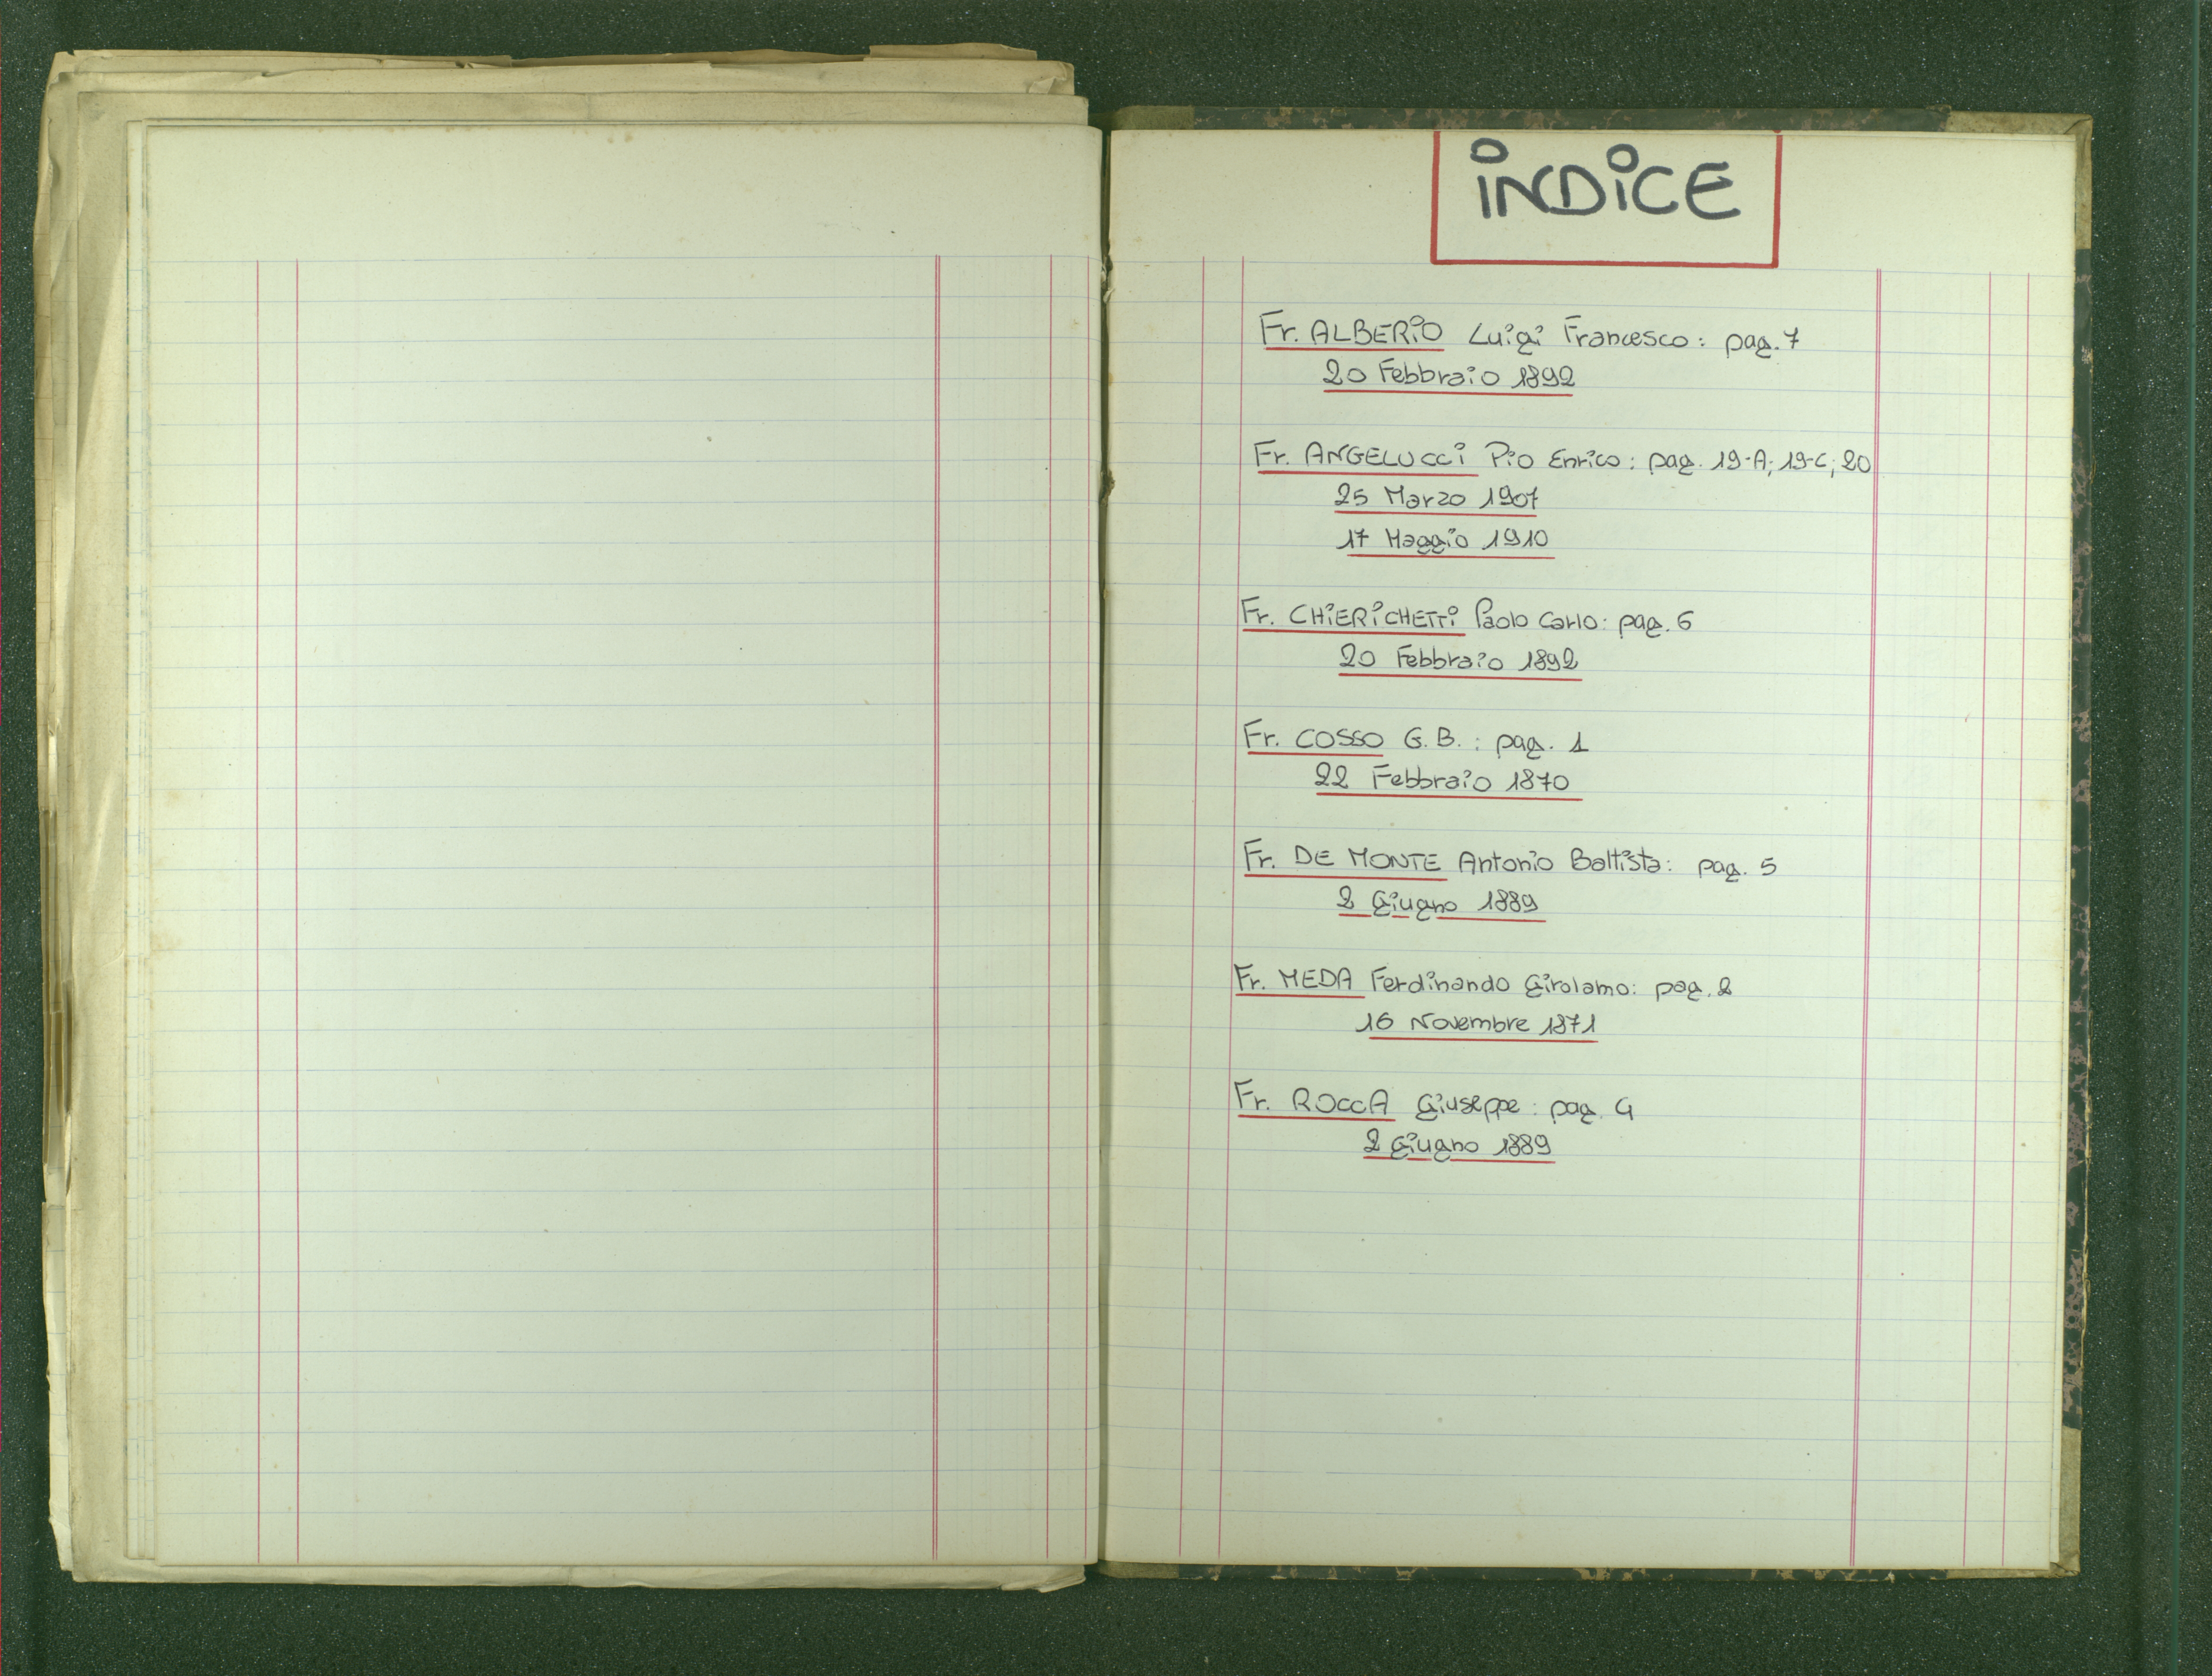 INDICE
Fr. ALBERIO Luigi Francesco: pag. 7
20 Febbraio 1892
Fr. ANGELUCCI Pio Enrico: pag. 19-A; 19-C; 20
25 Marzo 1907
17 Maggio 1910
Fr. CHIERICHETTI Paolo Carlo: pag. 6
20 Febbraio 1892
Fr. COSSO G.B.: pag. 1
22 Febbraio 1870
Fr. DE MONTE Antonio Battista: pag. 5
2 Giugno 1889
Fr. MEDA Ferdinando Girolamo: pag. 2
16 Novembre 1871
Fr. ROCCA Giuseppe: pag. 4
2 Giugno 1889